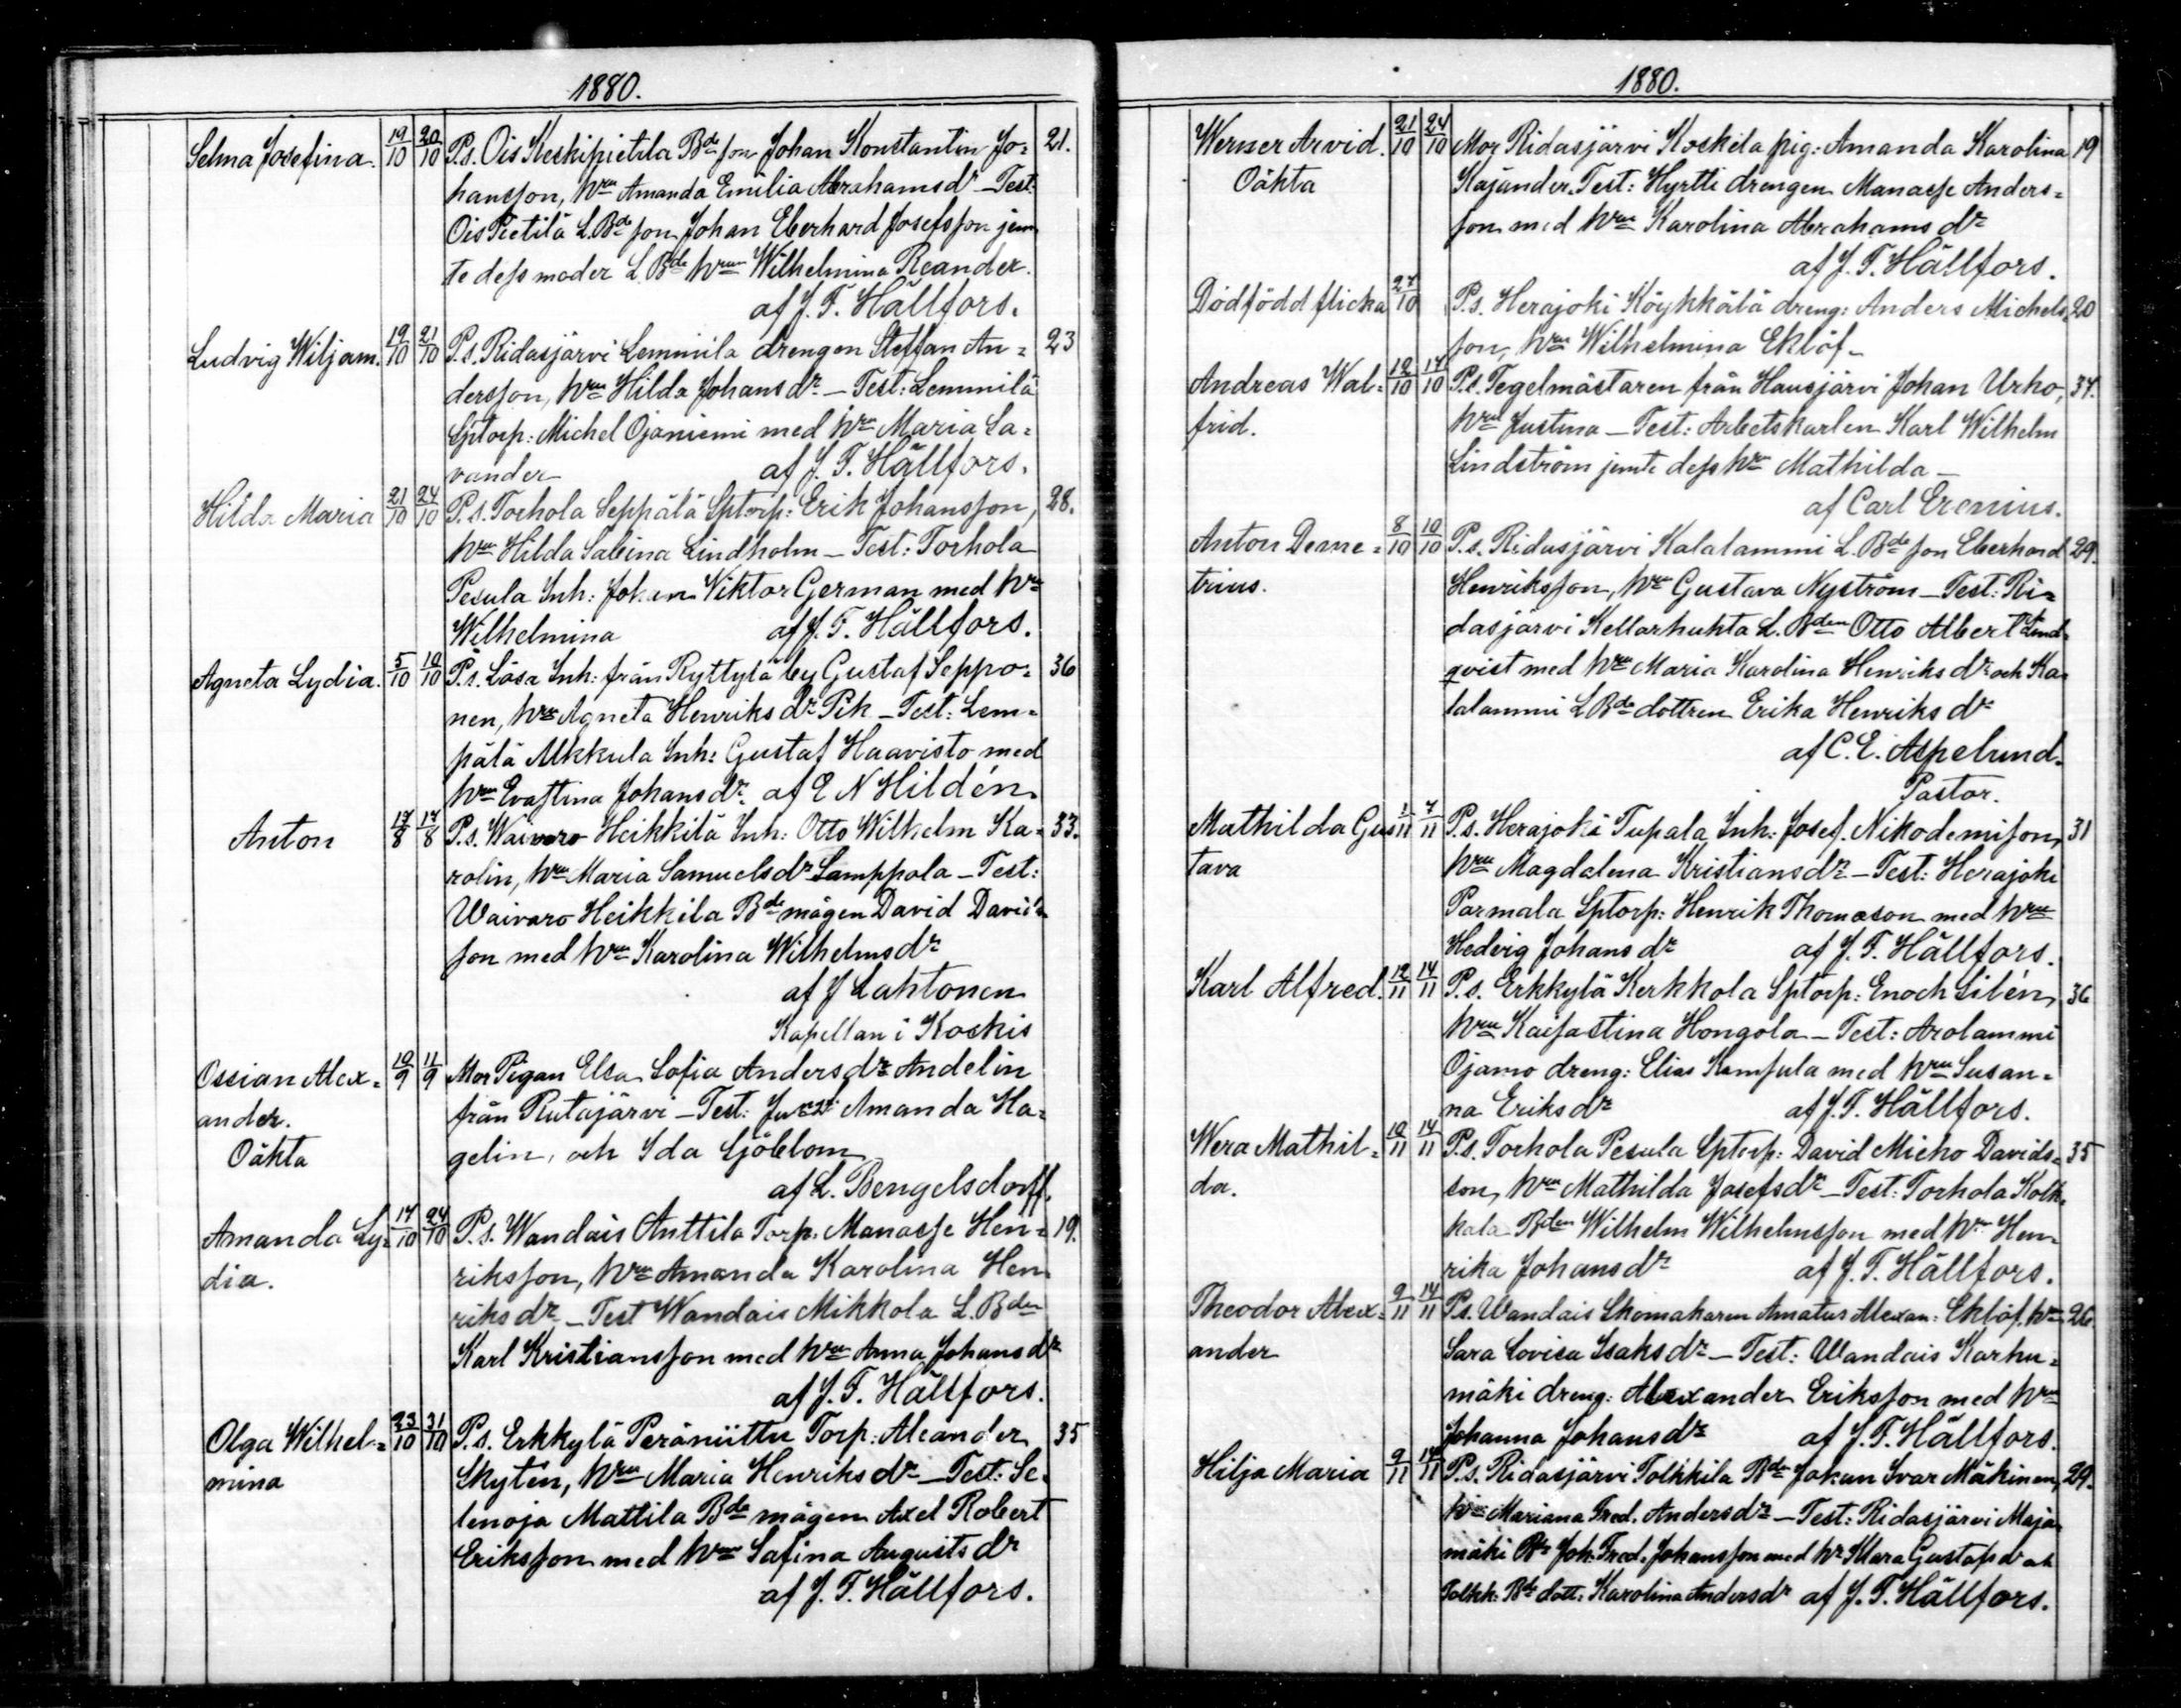 1880.
Selma Josefina. 19/10 20/10 P.s. Ois Keskipietila Bde son Johan Konstantin Jo= 21.
hansson, hru Amanda Emilia Abrahamsdr – Test:
Ois Pietilä L.Bde son Johan Eberhard Josefsson jem
te dess moder L Bde hrun Wilhelmina Reander.
af J. F. Hällfors.
Ludvig Wiljam. 19/10 21/10 P.s. Ridasjärvi Lemmila drengen Steffan An= 23
dersson, hru Hilda Johansdr. – Test: Lemmilä
Sptorp: Michel Ojaniemi med hru Maria La=
vander af J. F. Hällfors.
Hilda Maria 21/10 24/10 P.s. Torhola Seppälä Sptorp: Erik Johansson, 28.
hru Hilda Sabina Lindholm – Test: Torhola
Pesula Inh: Johan Viktor German med hru
Wilhelmina af J. F. Hällfors.
Agneta Lydia. 5/10 10/10 P.s. Lösa Inh: från Ryttylä by Gustaf Seppo= 36
nen, hru Agneta Henriksdr Pik – Test: Lem=
pälä Ukkula Inh: Gustaf Haavisto med
hru Evastina Johansdr. af E N Hildén.
Anton 17/8 17/8 P.s. Waivaro Heikkilä Inh: Otto Wilhelm Ka= 33.
rolin, hru Maria Samuelsdr Samppola – Test:
Waivaro Heikkila Bde mågen David Davids
son med hru Karolina Wilhelmsdr
af J Lahtonen
Kapellan i Koskis
Ossian Alex= 10/9 11/9 Mor Pigan Elsa Sofia Andersdr Andelin
ander. från Rutajärvi – Test: Amanda Ha=
Oäkta gelin, och Ida Sjöblom
af L. Bengelsdorff.
Amanda Ly= 14/10 24/10 P.s. Wandais Anttila Torp. Manasse Hen= 19.
dia. riksson, hru Amanda Karolina Hen
riksdr – Test Wandais Mikkola L.Bden
Karl Kristiansson med hru Anna Johansdr
af J. F. Hällfors.
Olga Wilhel= 23/10 31/10 P.s. Erkkylä Peräniittu Torp: Aleander 35
mina Skytén, hru Maria Henriksdr – Test: Se
lenoja Mattila Bde mågen Axel Robert
Eriksson med hru Safina Augustsdr
af J. F. Hällfors.
1880.
Werner Arvid. 21/10 24/10 Mor Ridasjärvi Koskela pig: Amanda Karolina 19
Oäkta Kajander. Test: Hyrtti drengen Manasse Anders=
son med hru Karolina Abrahamsdr
af J. F. Hällfors.
Dödfödd flicka 27/10 P.s. Herajoki Köykkälä dreng: Anders Michels 20
son, hru Wilhelmina Eklöf –
Andreas Wal= 12/10 14/10 P.s. Tegelmästaren från Hausjärvi Johan Urho, 34.
frid. hru Justina – Test: Arbetskarlen Karl Wilhelm
Lindström jemte dess hru Mathilda –
af Carl Erenius.
Anton Deme= 8/10 10/10 P.s. Ridasjärvi Kalalammi L. Bde son Eberhard 29.
trius. Henriksson, hru Gustava Nyström – Test: Ri=
dasjärvi Kellarhuhta L. Bden Otto Albert Lind
qvist med hru Maria Karolina Henriksdr och Ka
lalammi L Bde dottren Erika Henriksdr
af C. E. Aspelund.
Pastor.
Mathilda Gus 1/11 7/11 P.s. Herajoki Tupala Inh: Josef Nikodemisson, 31
tava hru Magdalena Kristiansdr – Test: Herajoki
Parmala Sptorp: Henrik Thomason med hru
Hedvig Johansdr af J. F. Hällfors.
Karl Alfred. 12/11 14/11 P.s. Erkkylä Kerkkola Sptorp: Enoch Silén, 36
hru Kaisastina Hongola – Test: Arolammi
Ojamo dreng: Elias Kempula med hru Susan=
na Eriksdr af J. F. Hällfors.
Wera Mathil= 10/11 14/11 P.s. Torhola Pesula Sptorp: David Micho Davids= 35
da. son, hru Mathilda Josefsdr – Test: Torhola Kolk
kala Bden Wilhelm Wilhelmsson med hru Hen
rika Johansdr af J. F. Hällfors.
Theodor Alex= 9/11 14/11 P.s. Wandais Skomakaren Amatus Alexan: Eklöf. hru 26.
ander Sara Lovisa Isaksdr – Test: Wandais Karhu=
mäki dreng: Alexander Eriksson med hru
Johanna Johansdr af J. F. Hällfors.
Hilja Maria 9/11 14/11 P.s. Ridasjärvi Tolkkila Bde Johan Ivar Mäkinen, 29.
hru Mariana Fred. Andersdr – Test: Ridasjärvi Maja
mäki Joh. Fred. Johansson med hr Klara Gustafsdr och
Tolkk: Bde dott: Karolina Andersdr af J. F. Hällfors.